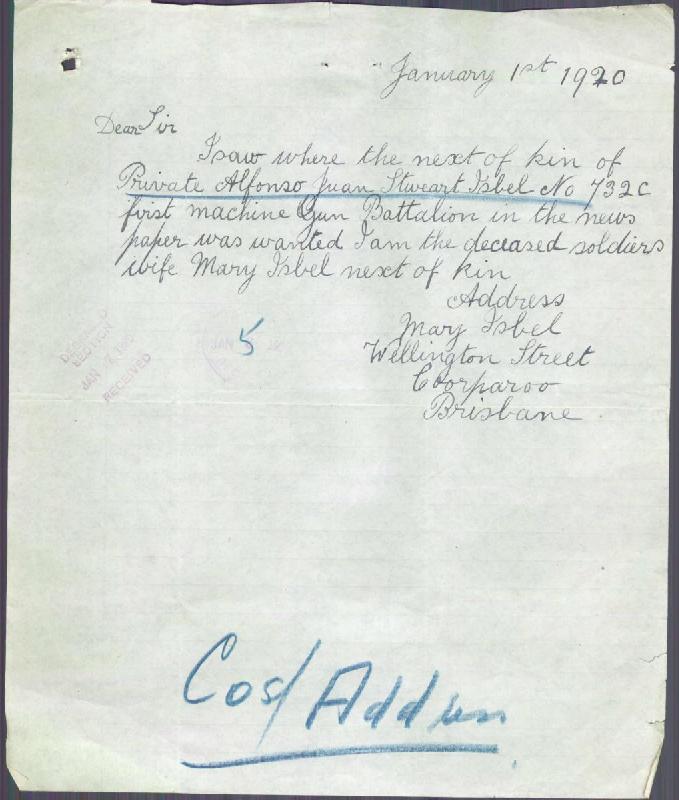 January 1st 1920
Dear Sir
I saw where the next of kin of
Private Alfonso Juan Stweart Isbel No 732C
first machine Gun Battalion in the news
paper was wanted I am the deceased soldiers
wife Mary Isbel next of kin
Address
Mary Isbel
Wellington Street
Coorparoo
Brisbane
5
SECTION
JAN
RECEIVED
JAN
Cos/Addres